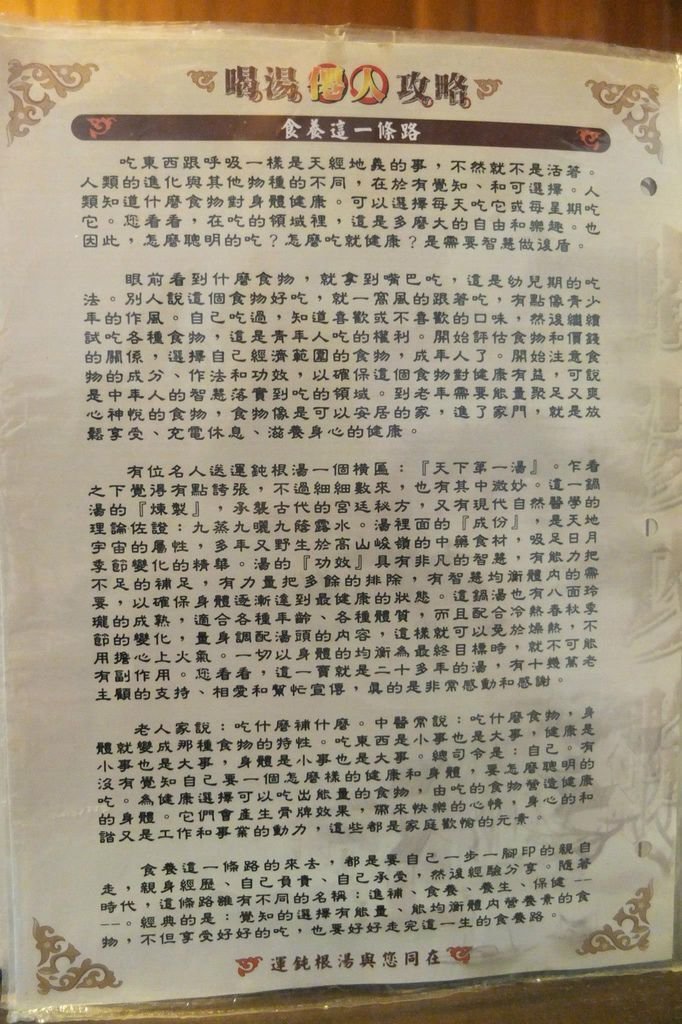 喝湯僊人攻略
食養這一條路
吃東西跟呼吸一樣是天經地義的事，不然就不是活著。
人類的進化與其他物種的不同，在於有覺知、和可選擇。人
類知道什麼食物對身體健康。可以選擇每天吃它或每星期吃
它。您看看，在吃的領域裡，這是多麼大的自由和樂趣。也
因此，怎麼聰明的吃？怎麼吃就健康？是需要智慧做後盾。
眼前看到什麼食物，就拿到嘴巴吃，這是幼兒期的吃
法。別人說這個食物好吃，就一窩風的跟著吃，有點像青少
年的作風。自己吃過，知道喜歡或不喜歡的口味，然後繼續
試吃各種食物，這是青年人吃的權利。開始評估食物和價錢
的關係，選擇自己經濟範圍的食物，成年人了。開始注意食
物的成分、作法和功效，以確保這個食物對健康有益，可說
是中年人的智慧落實到吃的領域。到老年需要能量聚足又爽
心神悅的食物，食物像是可以安居的家，進了家門，就是放
鬆享受、充電休息、滋養身心的健康。
有位名人送運鈍根湯一個橫匾：『天下第一湯』。乍看
之下覺得有點誇張，不過細細數來，也有其中微妙。這一鍋
湯的『煉製』，承襲古代的宮廷秘方，又有現代自然醫學的
理論佐證：九蒸九曬九蔭露水。湯裡面的『成份』，是天地
宇宙的屬性，多年又野生於高山峻嶺的中藥食材，吸足日月
季節變化的精華。湯的『功效』具有非凡的智慧，有能力把
不足的補足，有力量把多餘的排除，有智慧均衡體內的需
要，以確保身體逐漸達到最健康的狀態。這鍋湯也有八面玲
瓏的成熟，適合各種年齡、各種體質，而且配合冷熱春秋季
節的變化，量身調配湯頭的內容，這樣就可以免於燥熱，不
用擔心上火氣。一切以身體的均衡為最終目標時，就不可能
有副作用。您看看，這一賣就是二十多年的湯，有十幾萬老
主顧的支持、相愛和幫忙宣傳，真的是非常感動和感謝。
老人家說：吃什麼補什麼。中醫常說：吃什麼食物，身
體就變成那種食物的特性。吃東西是小事也是大事，健康是
小事也是大事，身體是小事也是大事。總司令是：自己。有
沒有覺知自己要一個怎麼樣的健康和身體，要怎麼聰明的
吃。為健康選擇可以吃出能量的食物，由吃的食物營造健康
的身體。它們會產生骨牌效果，帶來快樂的心情，身心的和
諧又是工作和事業的動力，這些都是家庭歡愉的元素。
食養這一條路的來去，都是要自己一步一腳印的親自
走，親身經歷、自己負責、自己承受，然後經驗分享。隨著
時代，這條路雖有不同的名稱：進補、食養、養生、保健--
--。經典的是：覺知的選擇有能量、能均衡體內營養素的食
物，不但享受好好的吃，也要好好走完這一生的食養路。
運鈍根湯與您同在